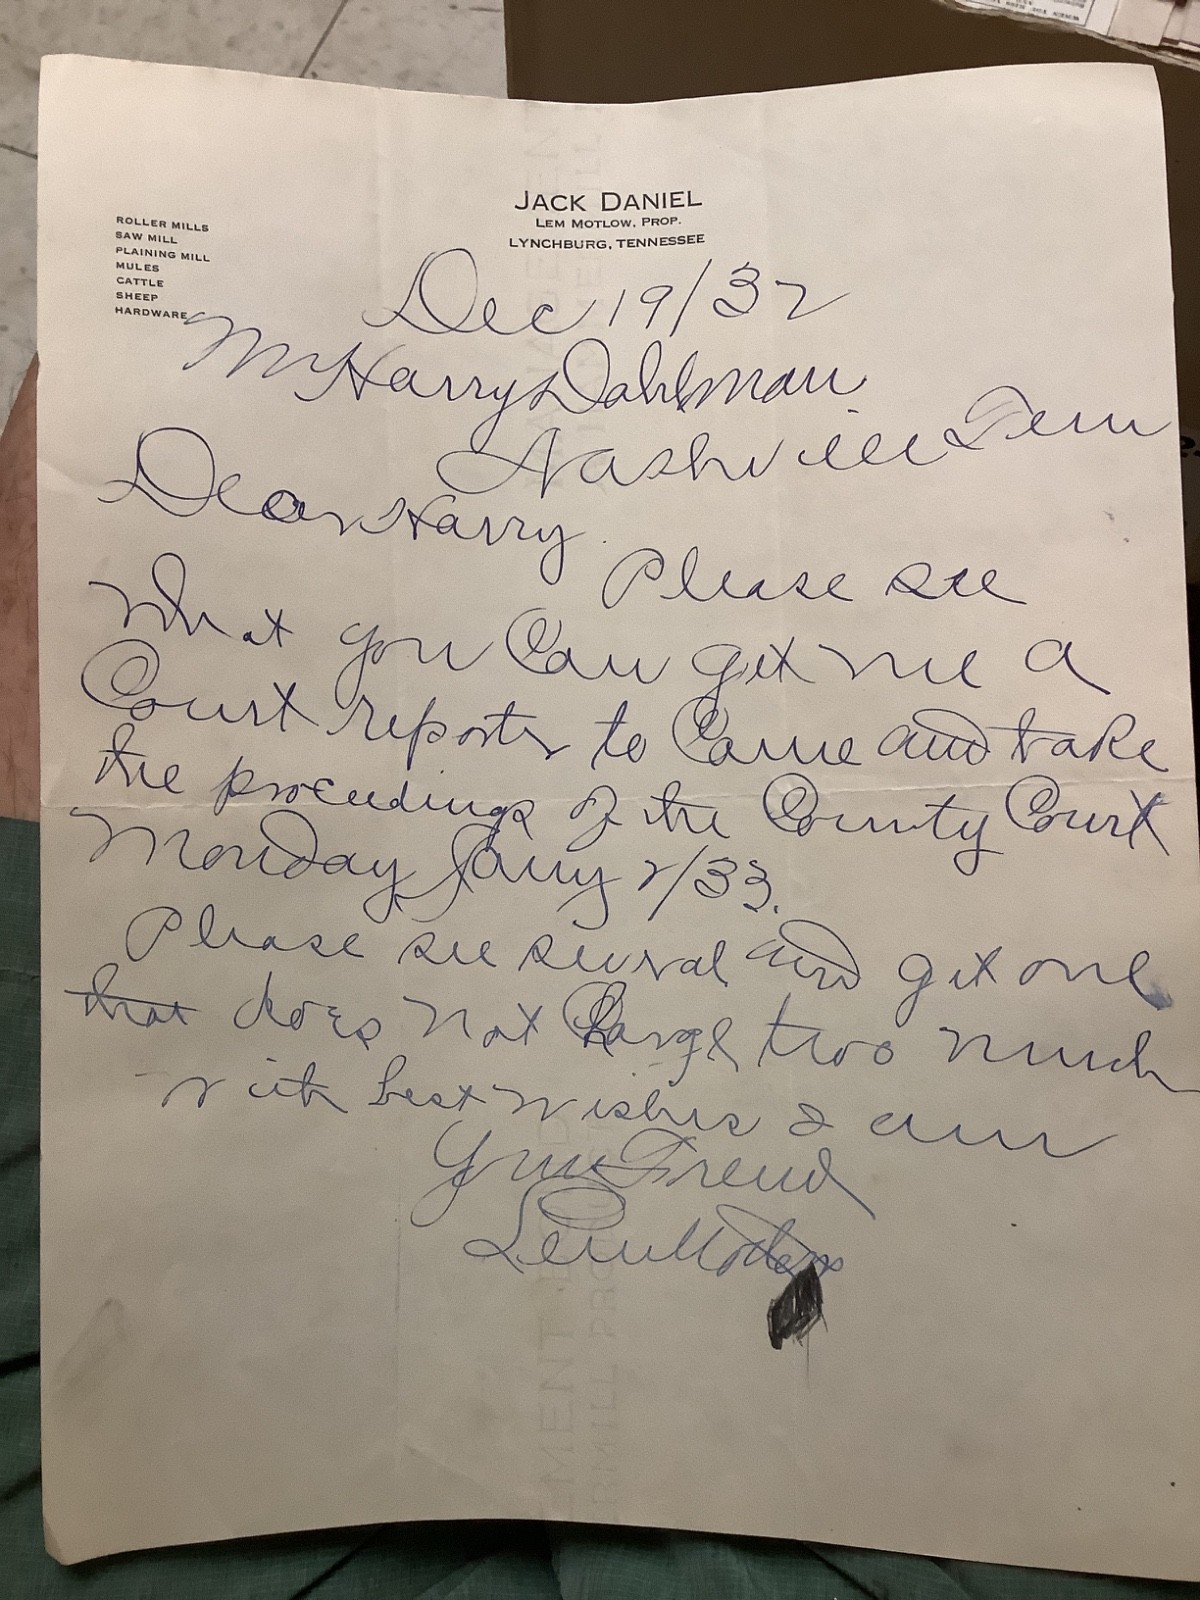 JACK DANIEL
LEM MOTLOW, PROP.
LYNCHBURG, TENNESSEE
ROLLER MILLS
SAW MILL
PLAINING MILL
MULES
CATTLE
SHEEP
HARDWARE
Dec 19/32
Mr Harry Dahlman
Nashville Tenn
Dear Harry.
Please see
what you Can get me a
Court reporter to Come and take
the proceedings of the County Court
Monday Jany 2/33.
Please see several and get one
that does not Charge two much
with best wishes I am
Your Friend
Lem Motlow